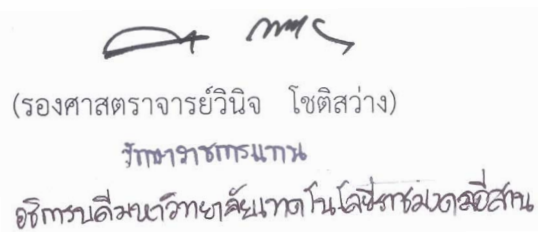 (รองศาสตราจารย์วินิจ โชติสว่าง)
รักษาราชการแทน
อธิการบดีมหาวิทยาลัยเทคโนโลยีราชมงคลอีสาน